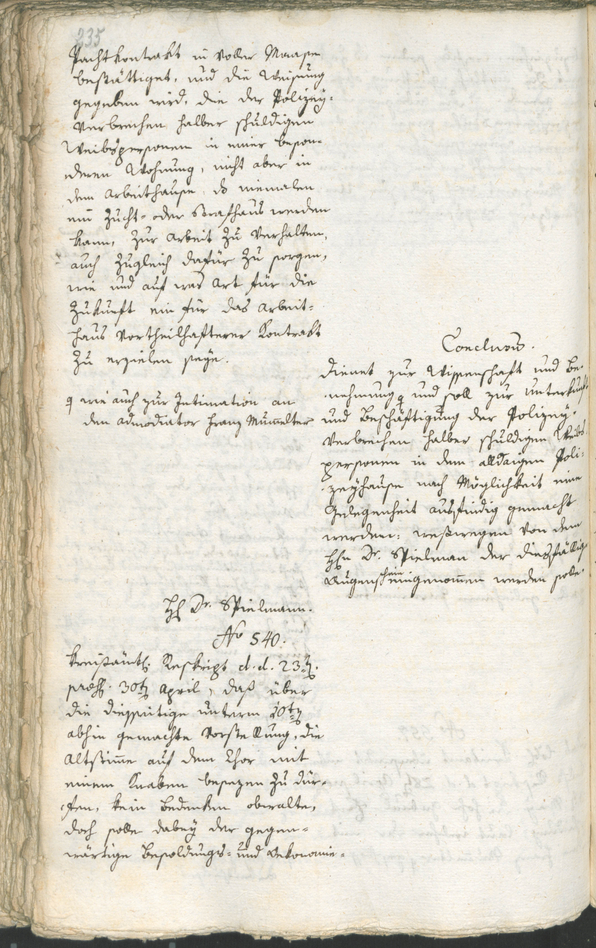 235
Pachtkontrakt in voller Maase
bestättiget, und die Weisung
gegeben wird, die der Polizey-
verbrechen halber schuldigen
Weibspersonen in einer beson-
deren Wohnung, nicht aber in
dem Arbeithause, so niemalen
ein Zucht- oder Strafhaus werden
kann, zur Arbeit zu verhalten,
auch zugleich dafür zu sorgen,
wie und auf was Art für die
Zukunft ein für das Arbeit-
haus vortheilhafterer Kontrakt
zu erzielen seye.
wie auch zur Intimation an
den Admodiator Franz Mumelter
Conclusum.
Dienet zur Wissenschaft und Be-
nehmung und soll zur Unterkunft
und Beschäftigung der Polizey-
verbrechen halber schuldigen Weibs
personen in dem alldaigen Poli-
zeyhause nach Möglichkeit eine
Gelegenheit ausfindig gemacht
werden: weßwegen von dem
Hh. Dr. Spielman der dießfällige
Augenschein eingenommen werden solle.
Hh Dr. Spielmann.
No 540.
Kreisämtl. Reskript d. d. 23t.
präs. 30t April, daß über
die diesseitige unterm 10t
abhin gemachte Vorstellung, die
Altstimme auf dem Chor mit
einem Knaben besezen zu dür-
fen, kein Bedenken obwalte,
doch solle dabey der gegen-
wärtige Besoldungs- und Oekonomie-